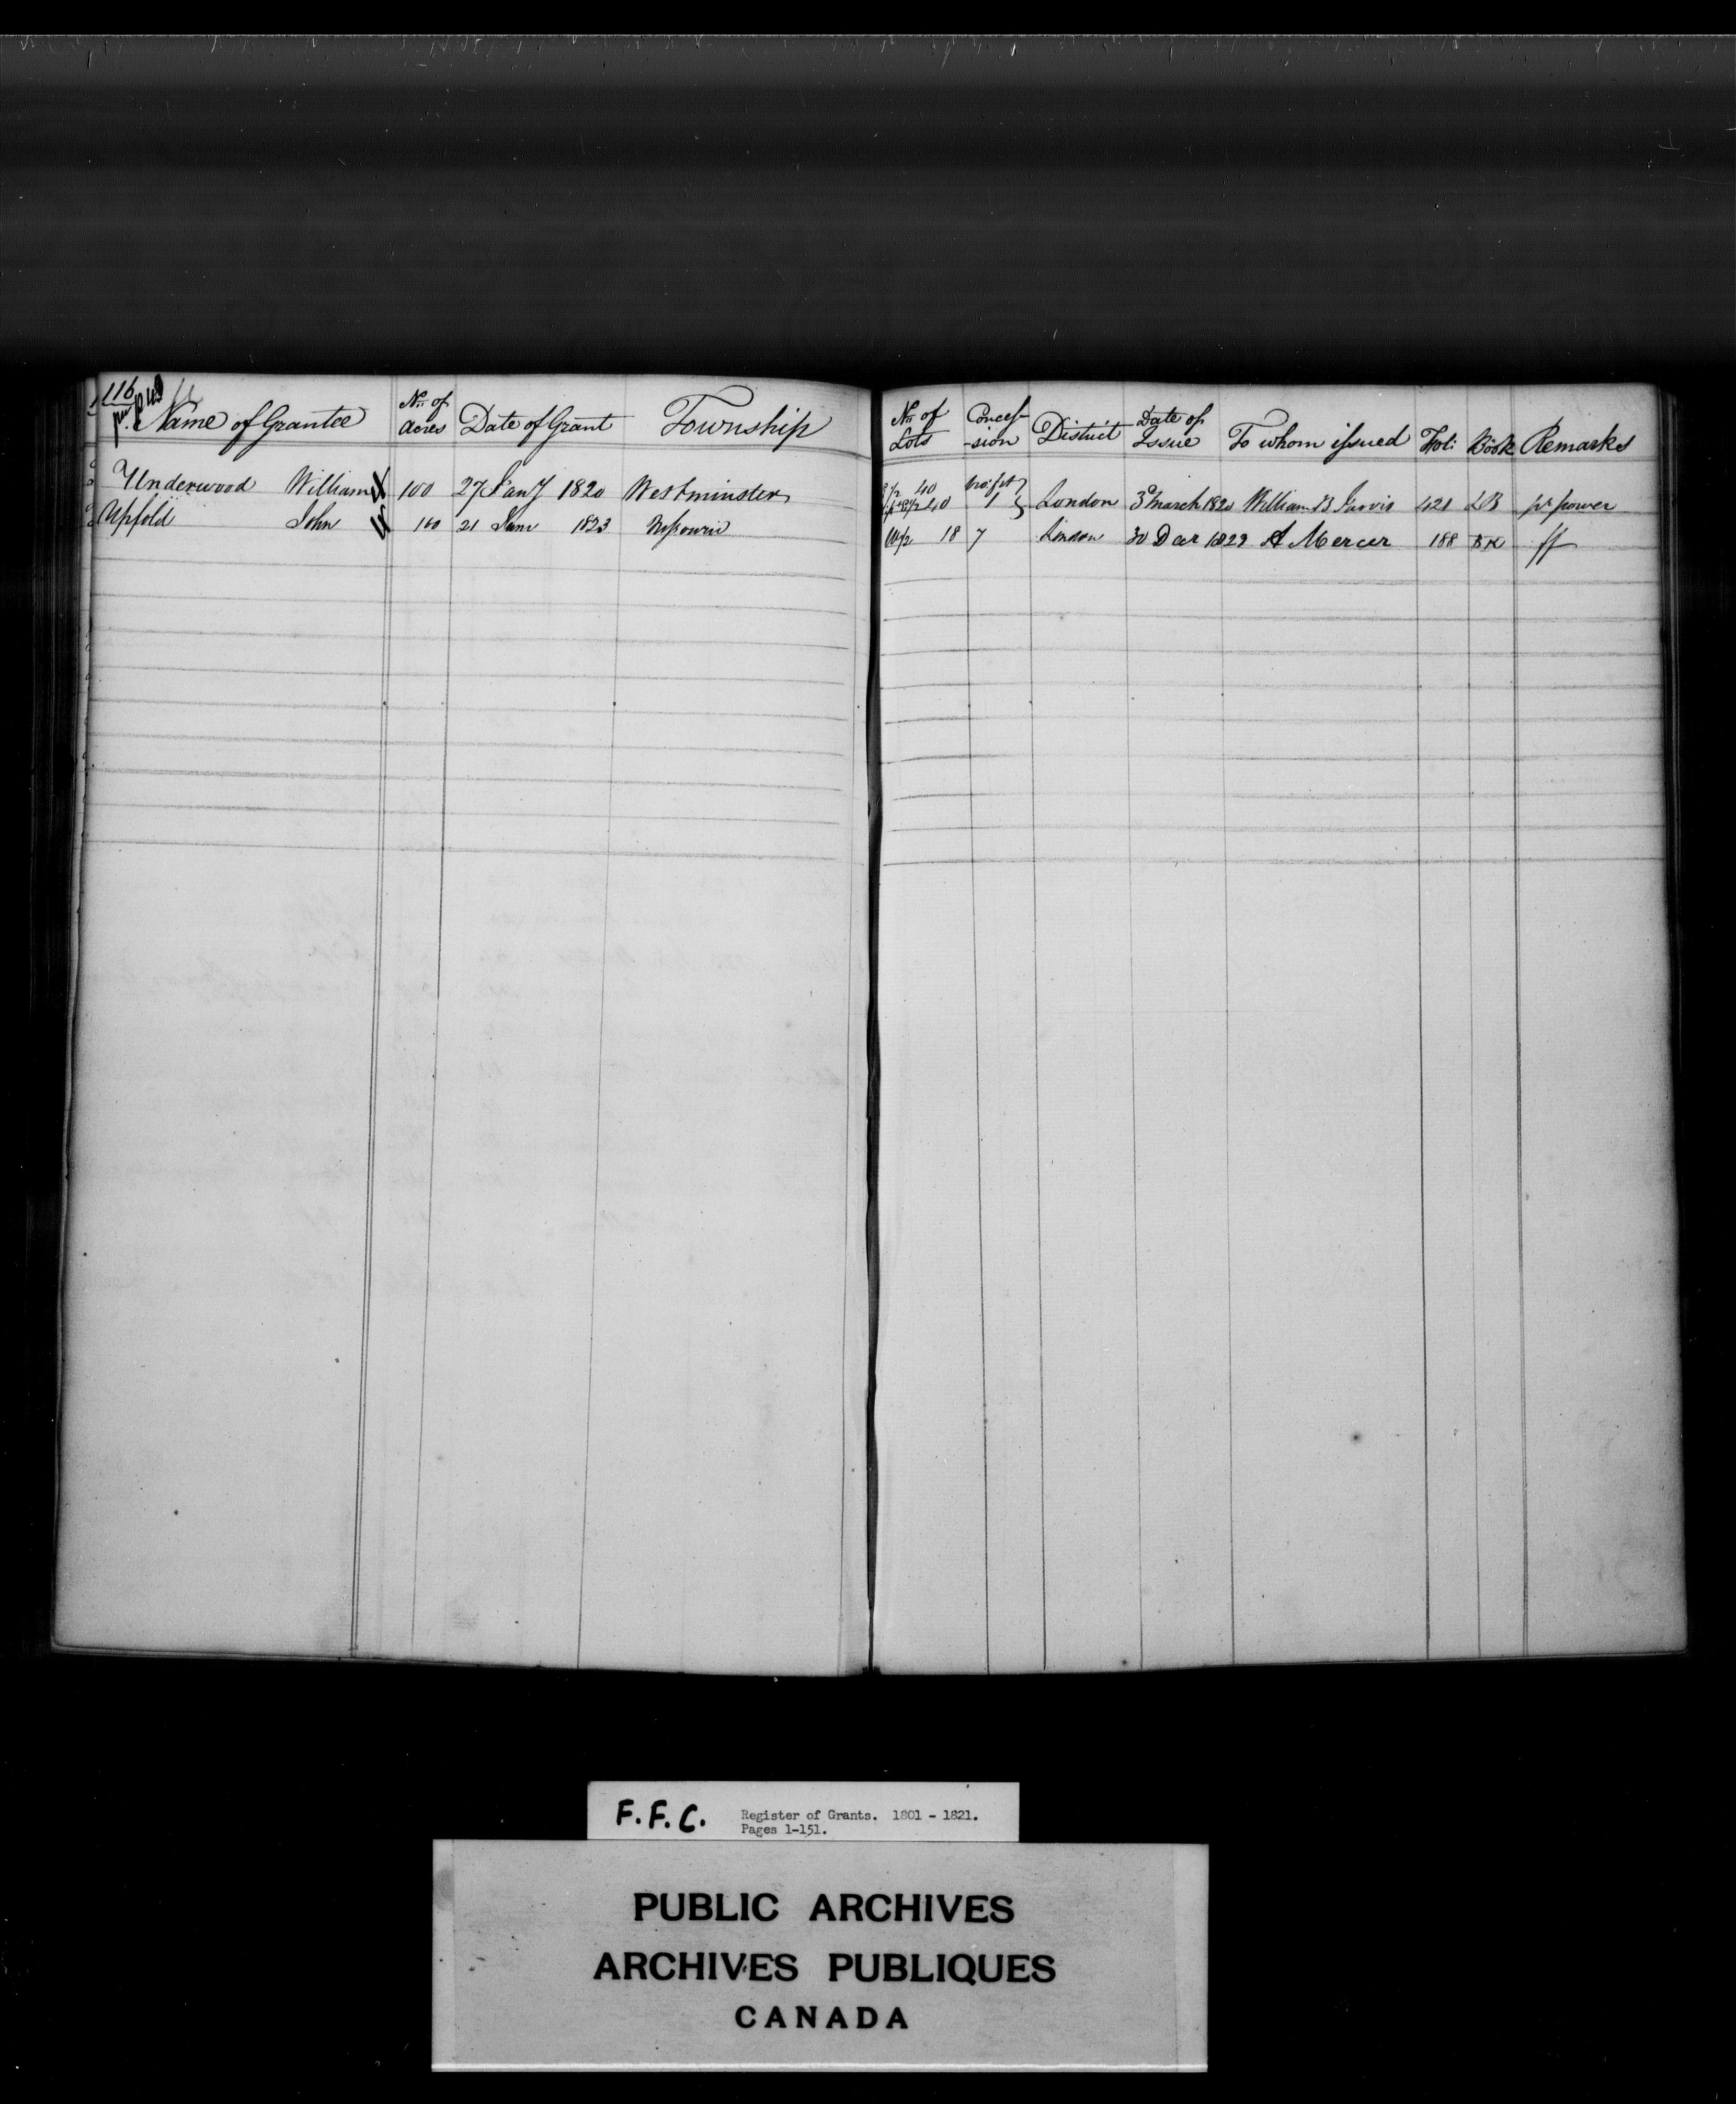 116
Name of Grantee No. of Acres Date of Grant Township No. of Lots Concession District Date of Issue To whom issued Fol: Book Remarks
Underwood William 100 27 Jany 1820 Westminster 1/2 40 1 London 3d March 1820 William B Jarvis 421 LB pr power
Upfold John 100 21 June 1823 Nissouri W1/2 18 7 London 30 Dec 1823 A Mercer 188 BK ff
F.F.C. Register of Grants. 1801 - 1821.
Pages 1-151.
PUBLIC ARCHIVES
ARCHIVES PUBLIQUES
CANADA